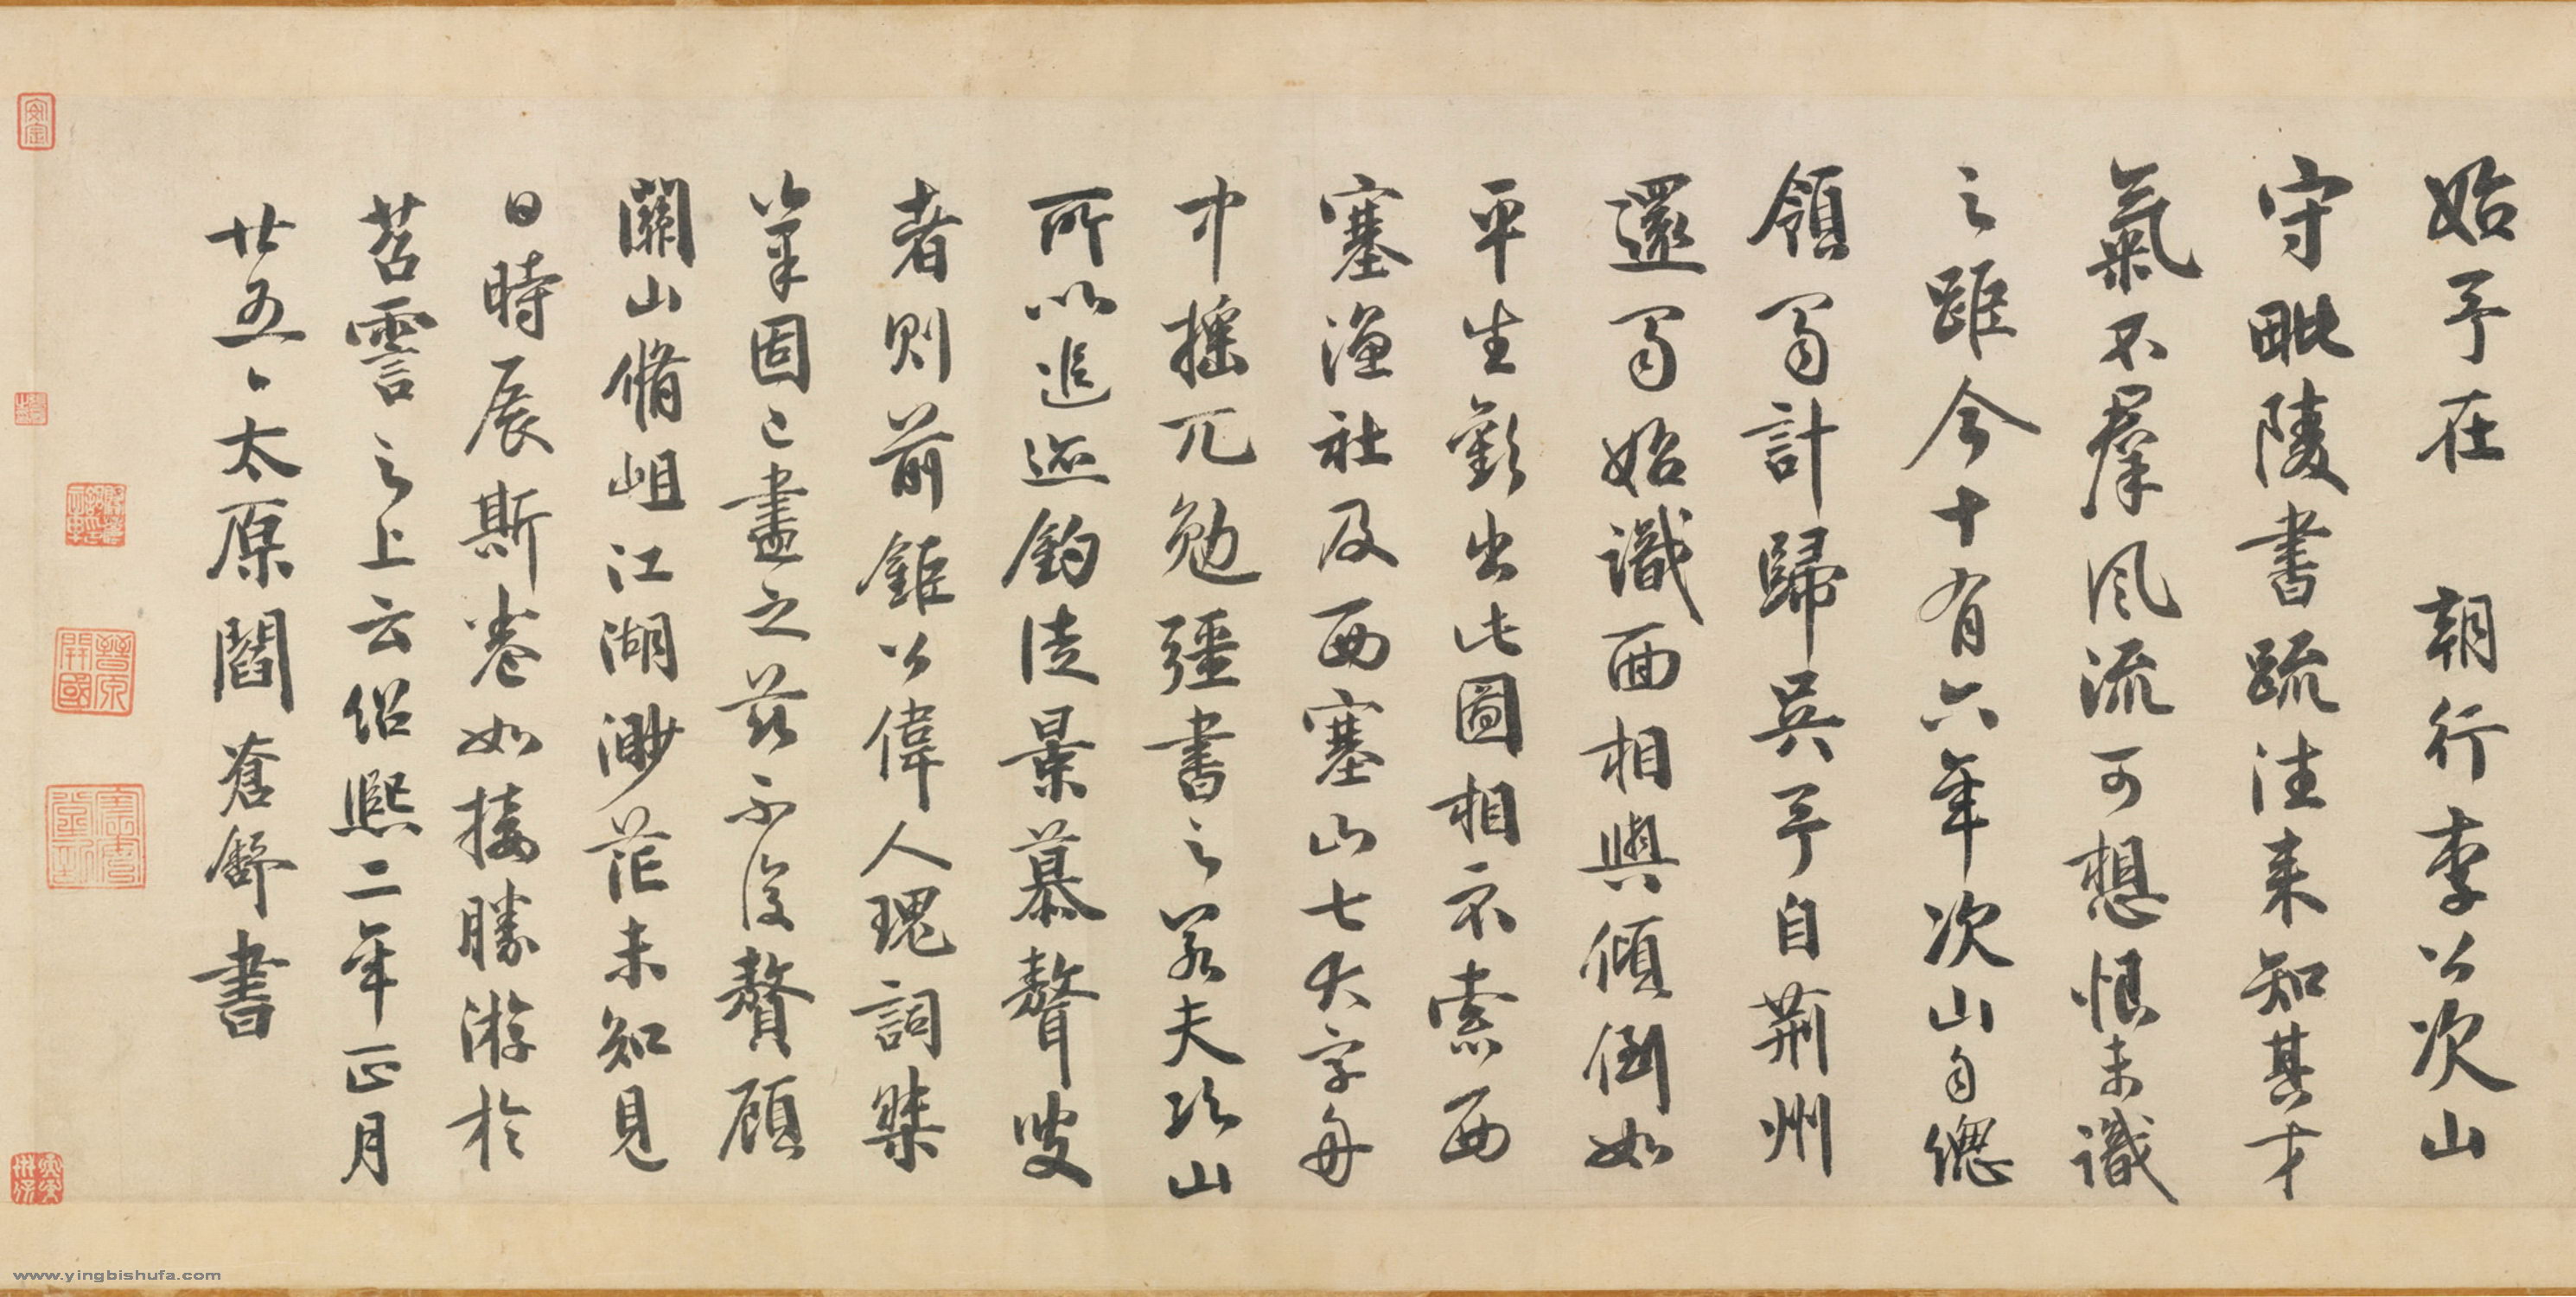 始予在 朝行李公次山
守毗陵書疏往来知其才
氣不羣風流可想恨未識
之雖今十有六年次山自總
領蜀計歸吳予自荆州
還蜀始識面相與傾倒如
平生歡出此圖相示索西
塞漁社及西塞山七大字舟
中搖兀勉彊書之若夫次山
所以追迹釣徒景慕聱叟
者則前鉅公偉人瑰詞傑
筆固已盡之茲不復贅顧
關山脩岨江湖渺茫未知見
日時展斯卷如接勝游於
苕霅之上云紹熙二年正月
廿五日太原閻蒼舒書
晉原開國
www.yingbishufa.com